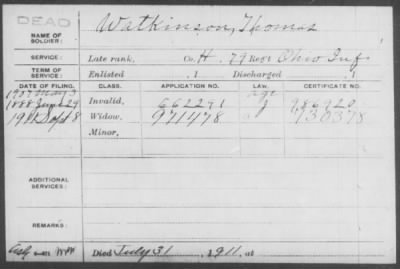 DEAD
NAME OF SOLDIER: Watkinson, Thomas
SERVICE: Late rank, Co. H. 79 Reg't Ohio Inf
TERM OF SERVICE: Enlisted , 1 Discharged , 1
DATE OF FILING. CLASS. APPLICATION NO. LAW. CERTIFICATE NO.
1907 May 3 Age
1888 June 29 Invalid, 662291 J 986920
1911 Sept 8 Widow, 971478 730378
Minor,
ADDITIONAL SERVICES:
REMARKS:
Died July 31, 1911, at